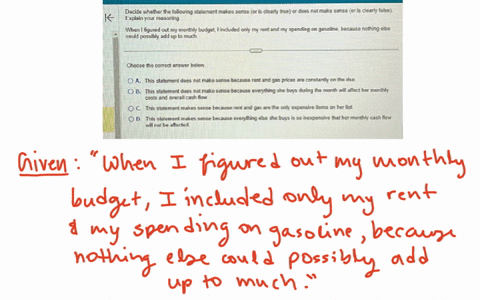 Decide whether the following statement makes sense (or is clearly true) or does not make sense (or is clearly false).
Explain your reasoning.
When I figured out my monthly budget, I included only my rent and my spending on gasoline, because nothing else
could possibly add up to much.
Choose the correct answer below.
A. This statement does not make sense because rent and gas prices are constantly on the rise
B. This statement does not make sense because everything she buys during the month will affect her monthly
costs and overall cash flow
C. This statement makes sense because rent and gas are the only expensive items on her list
D. This statement makes sense because everything else she buys is so inexpensive that her monthly cash flow
will not be affected
Given : "When I figured out my monthly
budget, I included only my rent
& my spending on gasoline, because
nothing else could possibly add
up to much."